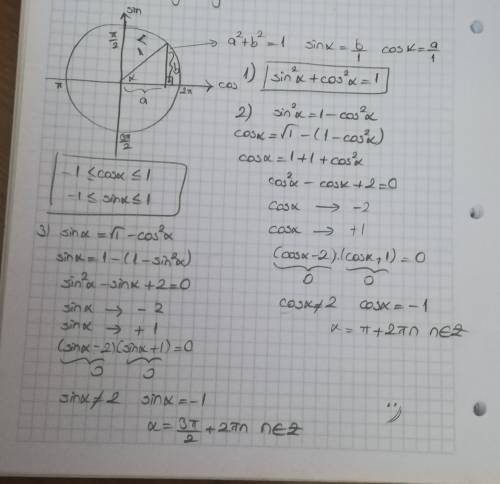 sin
π/2
1
b
α
a
cos
π
2π
3π/2
a²+b²=1 sinα=b/1 cosα=a/1
1) sin²α+cos²α=1
-1≤cosα≤1
-1≤sinα≤1
2) sin²α=1-cos²α
cosα=√1-(1-cos²α)
cosα=1+1+cos²α
cos²α-cosα+2=0
cosα → -2
cosα → +1
(cosα-2).(cosα+1)=0
0 0
cosα≠2 cosα=-1
α=π+2πn n∈Z
3) sinα=√1-cos²α
sinα=1-(1-sin²α)
sin²α-sinα+2=0
sinα → -2
sinα → +1
(sinα-2)(sinα+1)=0
0 0
sinα≠2 sinα=-1
α=3π/2+2πn n∈Z